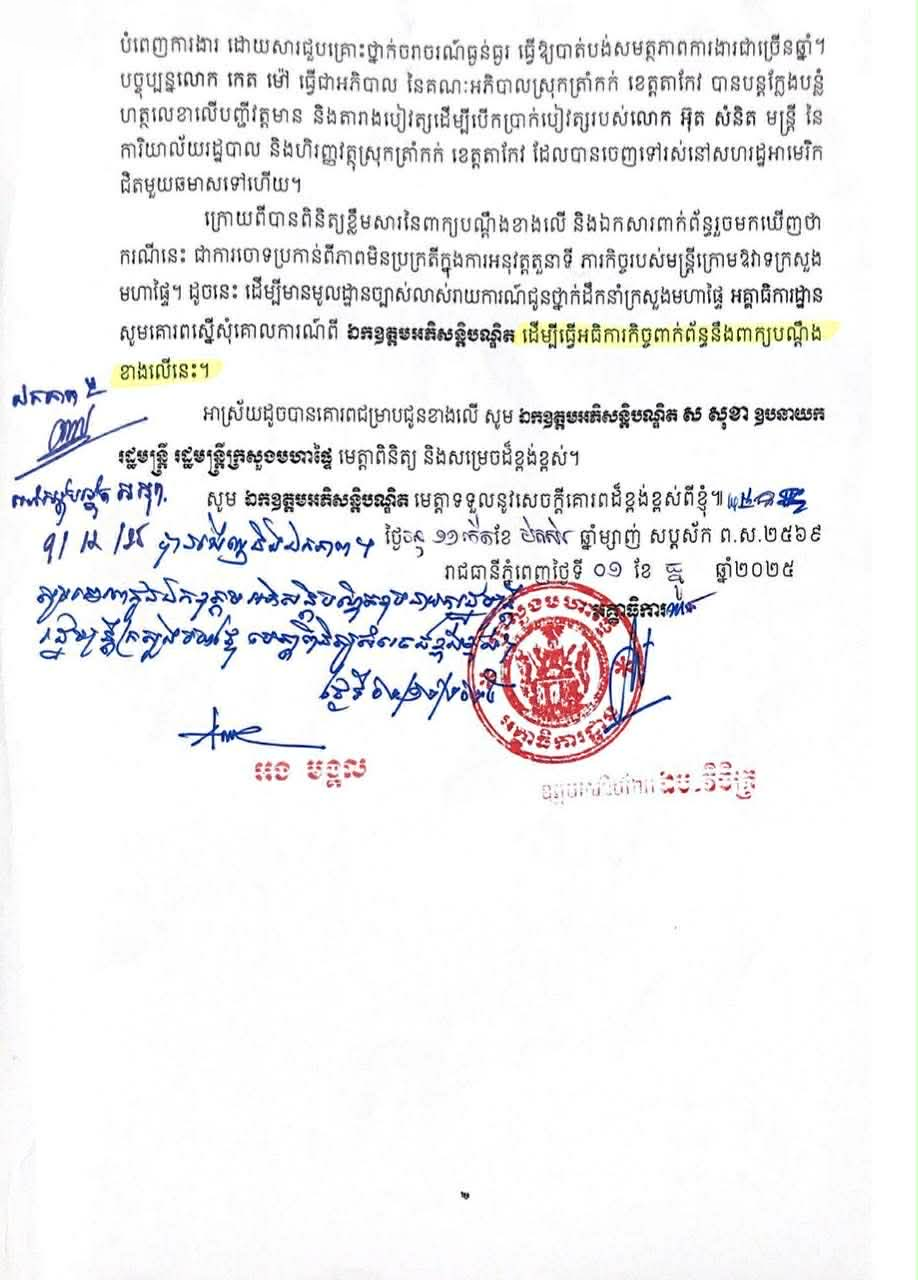 បំពេញការងារ ដោយសារជួបគ្រោះថ្នាក់ចរាចរណ៍ធ្ងន់ធ្ងរ ធ្វើឱ្យបាត់បង់សមត្ថភាពការងារជាច្រើនឆ្នាំ។
បច្ចុប្បន្នលោក កេត ម៉ៅ ធ្វើជាអភិបាល នៃគណៈអភិបាលស្រុកត្រាំកក់ ខេត្តតាកែវ បានបន្តក្លែងបន្លំ
ហត្ថលេខាលើបញ្ជីវត្តមាន និងតារាងបៀវត្សដើម្បីបើកប្រាក់បៀវត្សរបស់លោក អ៊ុត សំនិត មន្ត្រី នៃ
ការិយាល័យរដ្ឋបាល និងហិរញ្ញវត្ថុស្រុកត្រាំកក់ ខេត្តតាកែវ ដែលបានចេញទៅរស់នៅសហរដ្ឋអាមេរិក
ជិតមួយឆមាសទៅហើយ។
ក្រោយពីបានពិនិត្យខ្លឹមសារនៃពាក្យបណ្តឹងខាងលើ និងឯកសារពាក់ព័ន្ធរួចមកឃើញថា
ករណីនេះ ជាការចោទប្រកាន់ពីភាពមិនប្រក្រតីក្នុងការអនុវត្តតួនាទី ភារកិច្ចរបស់មន្ត្រីក្រោមឱវាទក្រសួង
មហាផ្ទៃ។ ដូចនេះ ដើម្បីមានមូលដ្ឋានច្បាស់លាស់រាយការណ៍ជូនថ្នាក់ដឹកនាំក្រសួងមហាផ្ទៃ អគ្គាធិការដ្ឋាន
សូមគោរពស្នើសុំគោលការណ៍ពី ឯកឧត្តមអភិសន្តិបណ្ឌិត ដើម្បីធ្វើអធិការកិច្ចពាក់ព័ន្ធនឹងពាក្យបណ្តឹង
ខាងលើនេះ។
អាស្រ័យដូចបានគោរពជម្រាបជូនខាងលើ សូម ឯកឧត្តមអភិសន្តិបណ្ឌិត ស សុខា ឧបនាយក
រដ្ឋមន្ត្រី រដ្ឋមន្ត្រីក្រសួងមហាផ្ទៃ មេត្តាពិនិត្យ និងសម្រេចដ៏ខ្ពង់ខ្ពស់។
សូម ឯកឧត្តមអភិសន្តិបណ្ឌិត មេត្តាទទួលនូវសេចក្តីគោរពដ៏ខ្ពង់ខ្ពស់ពីខ្ញុំ៕
ថ្ងៃចន្ទ ១១កើតខែ មិគសិរ ឆ្នាំម្សាញ់ សប្តស័ក ព.ស.២៥៦៩
រាជធានីភ្នំពេញថ្ងៃទី ០១ ខែ ធ្នូ ឆ្នាំ២០២៥
អគ្គាធិការ
អគ្គាធិការដ្ឋាន
អង មង្គល
២